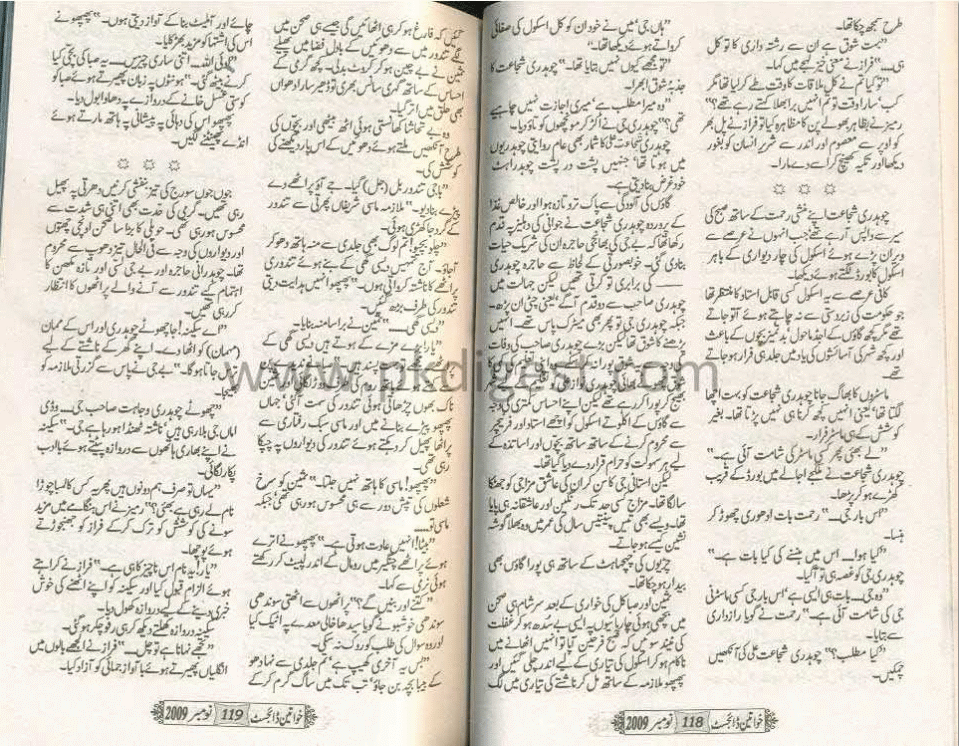 طرح سمجھ چکا تھا۔
"بہت شوق ہے ان سے رشتہ داری کا تو کل
ہی..." فراز نے معنی خیز لہجے میں کہا۔
"تو کیا تم نے کل ملاقات کا وقت طے کر لیا تھا مگر
کب' سارا وقت تو تم انہیں برا بھلا کہتے رہے تھے؟"
رمیز نے بظاہر بھولے پن کا مظاہرہ کیا تو فراز نے پل بھر
کو اوپر سے معصوم اور اندر سے شریر انسان کو بغور
دیکھا اور تکیہ کھینچ کر اسے دے مارا۔
چوہدری شجاعت اپنے منشی رحمت کے ساتھ صبح کی
سیر سے واپس آ رہے تھے جب انہوں نے عرصے سے
ویران پڑے ہوئے اسکول کی چار دیواری کے باہر
اسکول کا بورڈ لگتے ہوئے دیکھا۔
کافی عرصے سے یہ اسکول کسی قابل استاد کا منتظر تھا
جو حکومت کی زبردستی سے نہ چاہتے ہوئے آ تو جاتے
تھے مگر کچھ گاؤں کے اجڈ ماحول' بدتمیز بچوں کے باعث
اور کچھ شہر کی آسائشوں کی یاد میں جلد ہی فرار ہو جاتے
تھے۔
ماسٹروں کا بھاگ جانا چوہدری شجاعت کو بہت اچھا
لگتا تھا' یعنی انہیں کچھ کرنا ہی نہیں پڑتا تھا۔ بغیر
کوشش کے ہی ماسٹر فرار۔
"لے بھئی پھر کسی ماسٹر کی شامت آئی ہے۔"
چوہدری شجاعت نے ملگجے اجالے میں بورڈ کے قریب
کھڑے ہو کر پڑھا۔
"اس بار جی..." رحمت بات ادھوری چھوڑ کر
ہنسا۔
"کیا ہوا... اس میں ہنسنے کی کیا بات ہے۔"
چوہدری جی کو غصہ ہی تو آ گیا۔
"وہ جی... بات ہی ایسی ہے' اس بار جی کسی ماسٹرنی
جی کی شامت آئی ہے۔" رحمت نے گویا رازداری
سے بتایا۔
"کیا مطلب؟" چوہدری شجاعت علی کی آنکھیں
چمکیں۔
"ہاں جی' میں نے خود ان کو کل اسکول کی صفائی
کرواتے ہوئے دیکھا تھا۔"
"تو مجھے کیوں نہیں بتایا تھا۔" چوہدری شجاعت کا
جذبہ شوق ابھرا۔
"وہ میرا مطلب ہے' میری اجازت نہیں چاہیے
تھی؟" چوہدری جی نے اکڑ کر مونچھوں کو تاؤ دیا۔
چوہدری شجاعت علی کا شمار بھی عام روایتی چوہدریوں
میں ہوتا تھا' جنہیں پشت در پشت چوہدراہٹ
خود غرض بنا دیتی ہے۔
گاؤں کی آلودگی سے پاک تر و تازہ ہوا اور خالص غذا
کے پروردہ چوہدری شجاعت نے جوانی کی دہلیز پہ قدم
رکھا تھا کہ بے جی کی بھانجی حاجرہ ان کی شریک حیات
بنا دی گئی۔ خوبصورتی کے لحاظ سے حاجرہ چوہدری
کی برابری تو کرتی تھیں' لیکن جہالت میں
چوہدری صاحب سے دو قدم آگے' یعنی بنی ان پڑھ۔
جبکہ چوہدری جی تو پھر بھی میٹرک پاس تھے۔ انہیں
پڑھنے کا شوق تھا لیکن بڑے چوہدری صاحب کی وفات
بھیج کر پورا کر رہے تھے۔ لیکن اپنے احساس کمتری کی وجہ
سے گاؤں کے اکلوتے اسکول کو اچھے استاد اور فرنیچر
سے محروم کرنے کے ساتھ ساتھ بچوں اور اساتذہ کے
لیے ہر سہولت کو حرام قرار دے دیا گیا تھا۔
لیکن استانی جی کا سن کر ان کی عاشق مزاجی کو جھٹکا
سا لگا تھا۔ مزاج کسی حد تک رنگین اور عاشقانہ ہی پایا
تھا۔ ویسے بھی تیس پینتیس سال کی عمر میں وہ بھلا گوشہ
نشین کیسے ہو جاتے۔
چڑیوں کی چہچہاہٹ کے ساتھ ہی پورا گاؤں بھی
بیدار ہو چکا تھا۔
ثمین اور صبا کل کی خواری کے بعد سر شام ہی صحن
میں بچھی ہوئی چارپائیوں پہ ایسی بے سدھ ہو کر غفلت
کی نیند سوئیں کہ صبح فرحین آپا تو انہیں اٹھانے میں
ناکام ہو کر اسکول کی تیاری کے لیے اندر چلی گئیں اور
پھپھو ملازمہ کے ساتھ مل کر ناشتے کی تیاری میں لگ
خواتین ڈائجسٹ 118 نومبر 2009
گئیں کہ فارغ ہو کر ہی اٹھائیں گی جیسے ہی صحن میں
لگے تندور میں سے دھوئیں کے بادل فضا میں پھیلے
ثمین نے بے چین ہو کر کروٹ بدلی۔ کچھ گرمی کے
احساس کے ساتھ گہری سانس بھری تو ڈھیر سارا دھواں
بھی حلق میں اتر گیا۔
وہ بے تحاشا کھانستی ہوئی اٹھ بیٹھی اور بچوں کی
طرح آنکھیں ملتے ہوئے دھوئیں کے اس پار دیکھنے کی
کوشش کی۔
"باجی تندور بل (جل) گیا۔ جے آؤ پراٹھے دے
پیڑے بنا دیو۔" ملازمہ ماسی شریفاں پھرتی سے تندور
کے گرد جا کھڑی ہوئی۔
"چلو بچیو! تم لوگ بھی جلدی سے منہ ہاتھ دھو کر
آ جاؤ۔ آج تمہیں دیسی گھی کے بنے ہوئے تندوری
پراٹھے کا ناشتہ کرواتی ہوں۔" پھپھو انہیں ہدایت دیتی
تندور کی طرف بڑھ گئیں۔
"دیسی گھی...." ثمین نے برا سا منہ بنایا۔
"یار! بڑے مزے کے ہوتے ہیں دیسی گھی کے
ناک بھوں چڑھاتی ہوئی تندور کی سمت آ گئی' جہاں
پھپھو پیڑے بنانے میں اور ماسی سبک رفتاری سے
پراٹھا پھیل کر دہکتے ہوئے تندور کی دیواروں پہ چپکا
رہی تھی۔
"پھپھو! ماسی کا ہاتھ نہیں جلتا۔" ثمین کو سرخ
شعلوں کی تپش دور سے ہی محسوس ہو رہی تھی' جبکہ
ماسی تو....
"بیٹا! انہیں عادت ہوتی ہے۔" پھپھو نے اترے
ہوئے پراٹھے چنگیر میں رومال کے اندر لپیٹ کر رکھتے
ہوئے نرمی سے کہا۔
"کتنے اور بنیں گے؟" پراٹھوں سے اٹھتی سوندھی
سوندھی خوشبو نے گویا سیدھا خالی معدے پہ اٹیک کیا
اور وہ سوال کی طلب کو روک نہ سکی۔
"بس یہ آخری کھیپ ہے' تم جلدی سے نہا دھو
کے بیبا بچہ بن جاؤ' تب تک میں ساگ گرم کر کے
چائے اور آملیٹ بنا کے آواز دیتی ہوں۔" پھپھو نے
اس کی اشتہا کو مزید بھڑکایا۔
"اوئی اللہ... اتنی ساری چیزیں۔... یہ صبا کی بچی کیا
کرنے بیٹھ گئی۔" ہونٹوں پہ زبان پھیرتے ہوئے صبا کو
کوستی غسل خانے کے دروازے پہ دھاوا بول دیا۔
پھپھو اس کی دہائی پہ پیشانی پہ ہاتھ مارتے ہوئے
انڈے پھینٹنے لگیں۔
جوں جوں سورج کی تیز بنفشی کرنیں دھرتی پہ پھیل
رہی تھیں۔ گرمی کی حدت بھی اتنی ہی شدت سے
محسوس ہو رہی تھی۔ حویلی کا بڑا سا صحن اونچی چھتوں
اور دیواروں کی وجہ سے فی الحال تیز دھوپ سے محروم
تھا۔ چوہدرانی حاجرہ اور بے جی لسی اور تازہ مکھن کا
اہتمام کیے تندور سے آنے والے پراٹھوں کا انتظار
کر رہی تھیں۔
"اے سکینہ! جا چھوٹے چوہدری اور اس کے ممان
(مہمان) کو اٹھا دے۔ اپنے گھر کے ناشتے کے لیے
مل جانا ہو گا۔" بے جی نے پاس سے گزرتی ملازمہ کو
بھیجا۔
"چھوٹے چوہدری وجاہت صاحب جی.... وڈی
اماں جی بلا رہی ہیں' ناشتہ ٹھنڈا ہو رہا ہے جی۔" سکینہ
نے اپنے بھاری ہاتھوں سے دروازہ پیٹتے ہوئے با ادب
پکار لگائی۔
"یہاں تو صرف ہم دونوں ہیں پھر یہ کس کا لمبا چوڑا
نام لے رہی ہے بھئی؟" رمیز نے اس ہنگامے میں مزید
سونے کی کوشش کو ترک کر کے فراز کو جھنجوڑتے
ہوئے پوچھا۔
"یار! یہ نام اس ناچیز کا ہی ہے۔" فراز نے کراہتے
ہوئے الزام قبول کیا اور سکینہ کو اپنے اٹھنے کی خوش
خبری دینے کے لیے دروازہ کھول دیا۔
سکینہ دروازہ کھلتے دیکھ کر ہی رفو چکر ہو گئی۔
"تجھے نہانا ہے تو چل..." فراز نے الجھے بالوں میں
انگلیاں پھیرتے ہوئے با آواز جمائی کو آزاد کیا۔
خواتین ڈائجسٹ 119 نومبر 2009
www.pkdigest.com